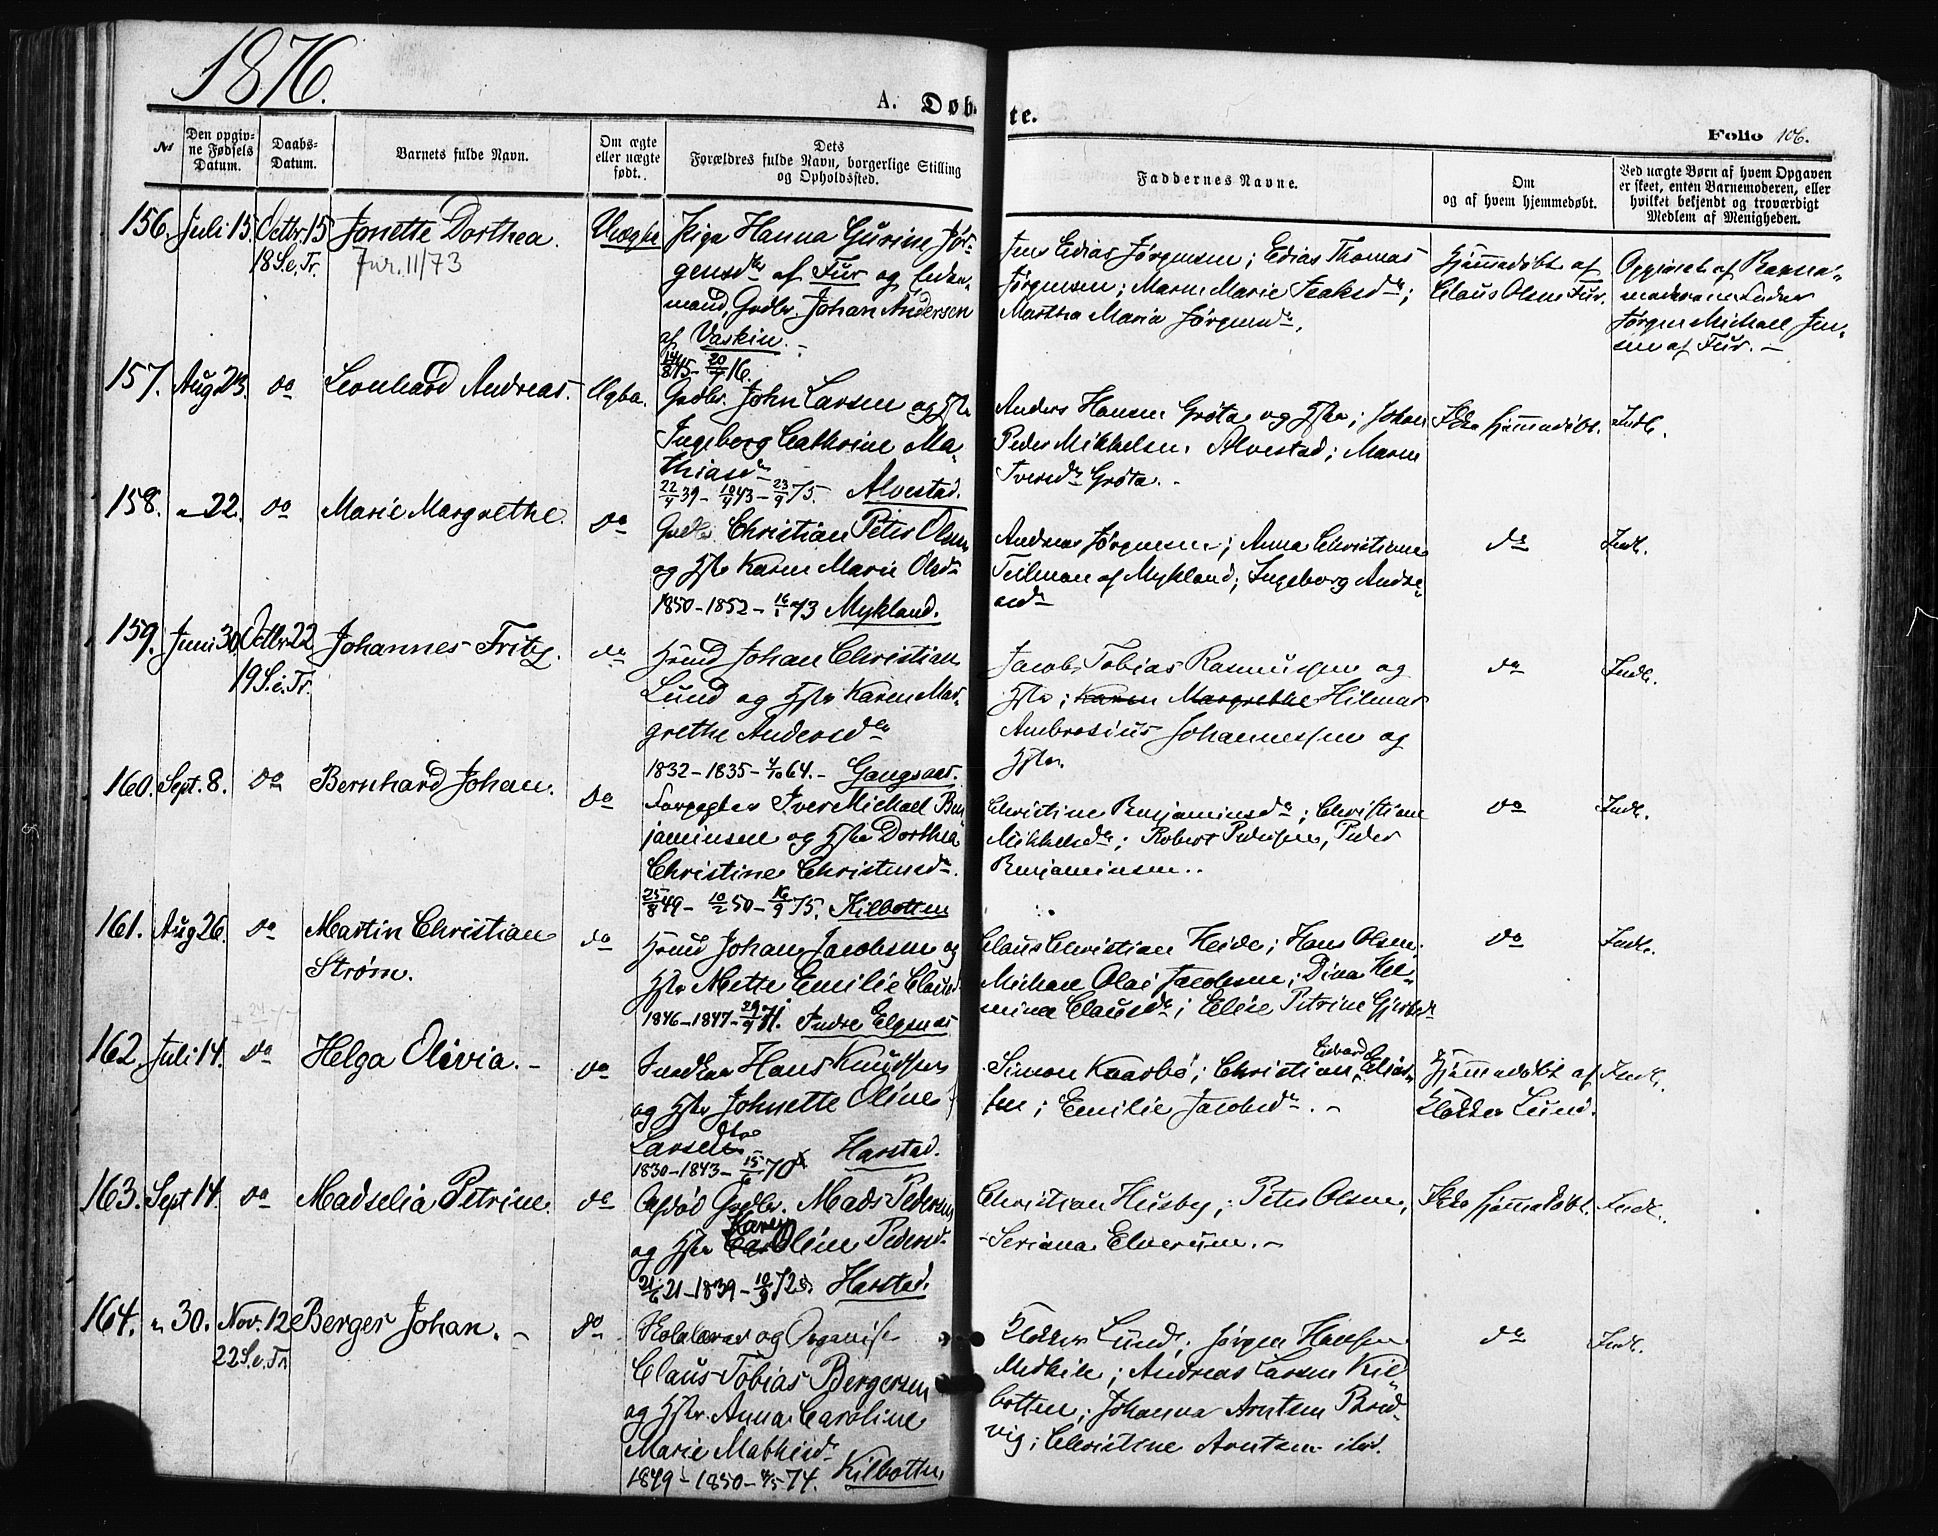 1876.
A. Døb-
te.
Folio 106.
No
Den opgiv-
ne Fødsels
Datum.
Daabs-
Datum.
Barnets fulde Navn.
Om ægte
eller uægte
født.
Dets
Forældres fulde Navn, borgerlige Stilling
og Opholdssted.
Faddernes Navne.
Om
og af hvem hjemmedøbt.
Ved uægte Børn af hvem Opgaven
er skeet, enten Barnemoderen, eller
hvilket bekjendt og troværdigt
Medlem af Menigheden.
156. Juli 15. Octbr. 15 Jonette Dorthea. Uægte
18 S.e.Tr. Fur. 11/73
Pige Hanna Gurine Jør-
gensdtr af Fur og Enke-
mand, Gadbr. Johan Andersen
af Vaskin. -
14/8 45 - 20/7 16.
Jens Edias Jørgensen; Edias Thomas
Jørgensen; Maren Marie Isaksdr;
Marthea Maria Jørgensdr.
Hjemmedøbt af
Claus Olsen Fur.
Opgivet af Barne-
moderens Fader
Jørgen Michael Jen-
sen af Fur. -
157. Aug 23. do Leonhard Andreas. Ægte.
Gadbr. John Larsen og Hstr
Ingeborg Cathrine Ma-
thiasdr
22/4 39 - 10/9 43 - 23/9 75. Alvestad.
Anders Hansen Grøta og Hstr; Johan
Peder Mikkelsen Alvestad; Maren
Iversdr Grøta. -
Ikke hjemmedøbt. Indl.
158. " 22. do Marie Margrethe. do
Gadbr. Christian Peter Olsen
og Hstr Karen Marie Olsdr
1850 - 1852 - 16/1 73 Mykland.
Andreas Jørgensen; Anna Christiane
Teilman af Mykland; Ingeborg Andre-
asdr
do Indl.
159. Juni 30. Octbr. 22 Johannes Fritz. do
19 S.e.Tr.
Hmd Johan Christian
Lund og Hstr Karen Mar-
grethe Andersdr
1832 - 1835 - 4/10 64. - Gangsaas.
Jacob Tobias Rasmussen og
Hstr; Karen Margrethe Hilmar
Ambrosius Johannessen og
Hstr.
do Indl.
160. Sept. 8. do Bernhard Johan. do
Forpagter Iver Michael Ben-
jaminsen og Hstr Dorthea
Christine Christensdr.
25/8 49 - 10/2 50 - 16/9 75. Kilbotten
Christine Benjaminsdr; Christiane
Mikkelsdr; Robert Pedersen, Peder
Benjaminsen.
do Indl.
161. Aug 26. do Martin Christian do
Strøm.
Hmd Johan Jacobsen og
Hstr Mette Emilie Clausd.
1846 - 1847 - 29/9 71. Indre Elgsnæs
Claus Christian Heide; Hans Olsen;
Mikael Olai Jacobsen; Dina Hel-
mina Clausdr; Elise Petrine Gjertsdr
do Indl.
162. Juli 14. do Helga Olivia. - do
Snedker Hans Knudsen
og Hstr Johnette Oline
Larsedtr
1830 - 1843 - 15/6 70 Harstad.
Simon Kaarbø; Christian Edvard Elias-
sen; Emilie Jacobsdr. -
Hjemmedøbt af
Klokker Lund. Indl.
163. Sept 14. do Madselia Petrine. do
Afdød Gadbr. Mads Pedersen
og Hstr Karen Oline Pedersdr
21/6 21 - 1839 - 10/9 72. Harstad.
Christian Husby; Peter Olsen,
Seriana Elverum. -
Ikke hjemmedøbt. Indl.
164. " 30. Nov. 12 Berger Johan. - do
22 S.e.Tr.
Skolelærer og Organist
Claus Tobias Bergersen
og Hstr. Anna Caroline
Marie Mathisdr
1849 - 1850 - 4/5 74. Kilbotten
Klokker Lund; Jørgen Hansen
Medkile; Andreas Larsen Kil-
botten; Johanna Arntsen Bred-
vig; Christine Arntsen ibid.
do Indl.